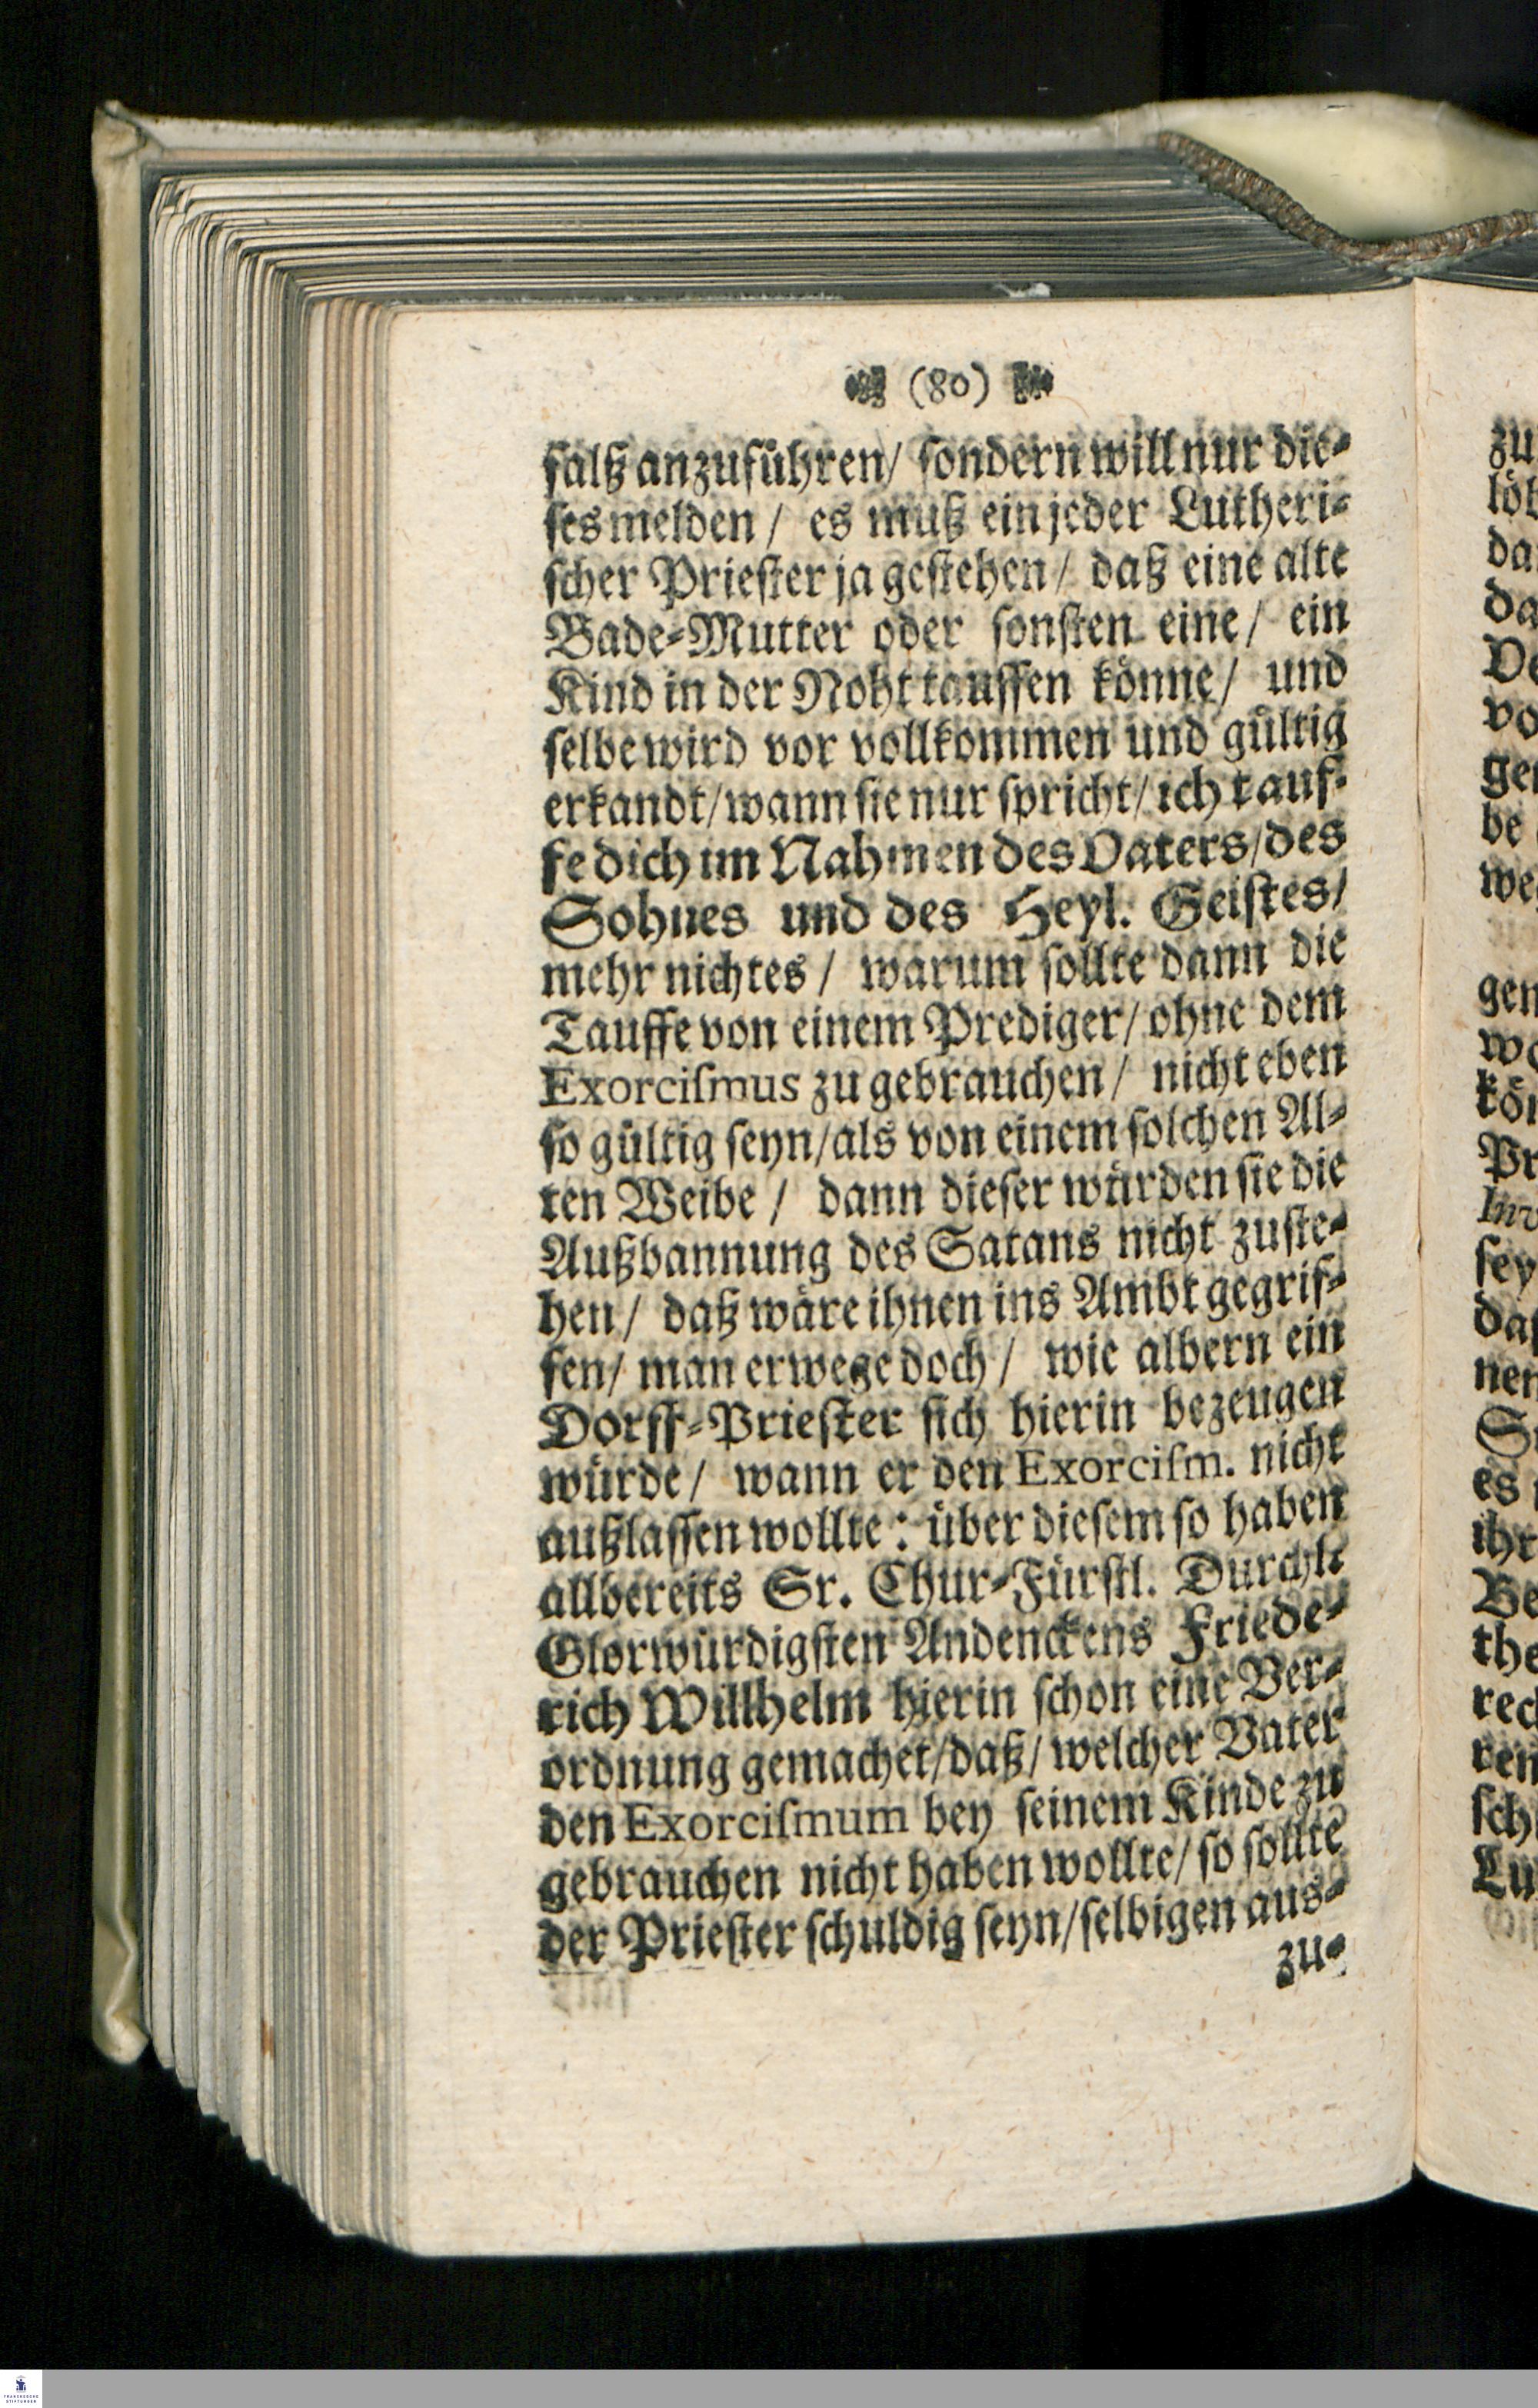 (80)
falß anzuführen/ sondern will nur die-
ses melden/ es muß ein jeder Lutheri-
scher Priester ja gestehen/ daß eine alte
Bade-Mutter oder sonsten eine/ ein
Kind in der Noht tauffen könne/ und
selbe wird vor vollkommen und gültig
erkandt/ wann sie nur spricht/ ich tauf-
fe dich im Nahmen des Vaters/ des
Sohnes und des Heyl. Geistes/
mehr nichtes/ warum sollte dann die
Tauffe von einem Prediger/ ohne dem
Exorcismus zu gebrauchen/ nicht eben
so gültig seyn/ als von einem solchen Al-
ten Weibe/ dann dieser würden sie die
Außbannung des Satans nicht zuste-
hen/ daß wäre ihnen ins Ambt gegrif-
fen/ man erwege doch/ wie albern ein
Dorff-Priester sich hierin bezeugen
würde/ wann er den Exorcism. nicht
außlassen wollte: über diesem so haben
allbereits Sr. Chur-Fürstl. Durchl.
Glorwürdigsten Andenckens Friede-
rich Willhelm hierin schon eine Ver-
ordnung gemachet/ daß/ welcher Vater
den Exorcismum bey seinem Kinde zu
gebrauchen nicht haben wollte/ so sollte
der Priester schuldig seyn/ selbigen aus-
zu-
zu
löb
da
da
Ve
vo
ge
be
we
gen
wo
kön
Pr
Inv
sey
daß
nen
es
ihr
Be
the
rec
ren
sch
Lu
FRANCKESCHE
STIFTUNGEN